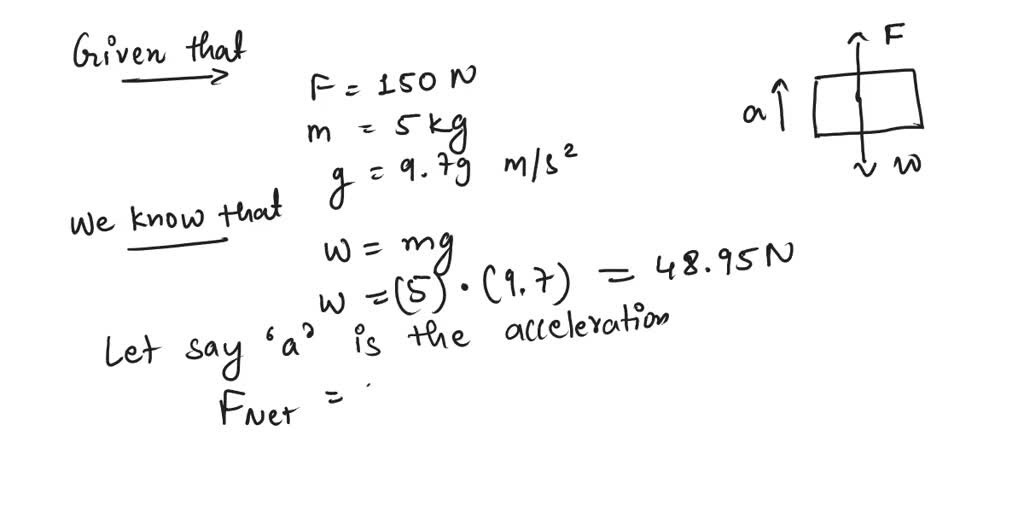 Given that
F = 150 N
m = 5 kg
g = 9.79 m/s²
We know that
W = mg
W = (5) · (9.7) = 48.95 N
Let say 'a' is the acceleration
FNet =
F
a
W